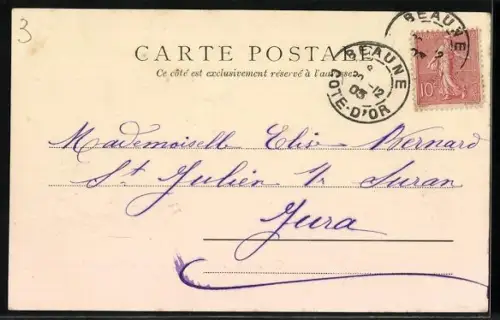 3
CARTE POSTALE
Ce côté est exclusivement réservé à l'adresse
BEAUNE
CÔTE-D'OR
12
03
BEAUNE
10c
Mademoiselle Elise Bernard
St Julien s/ Suran
Jura